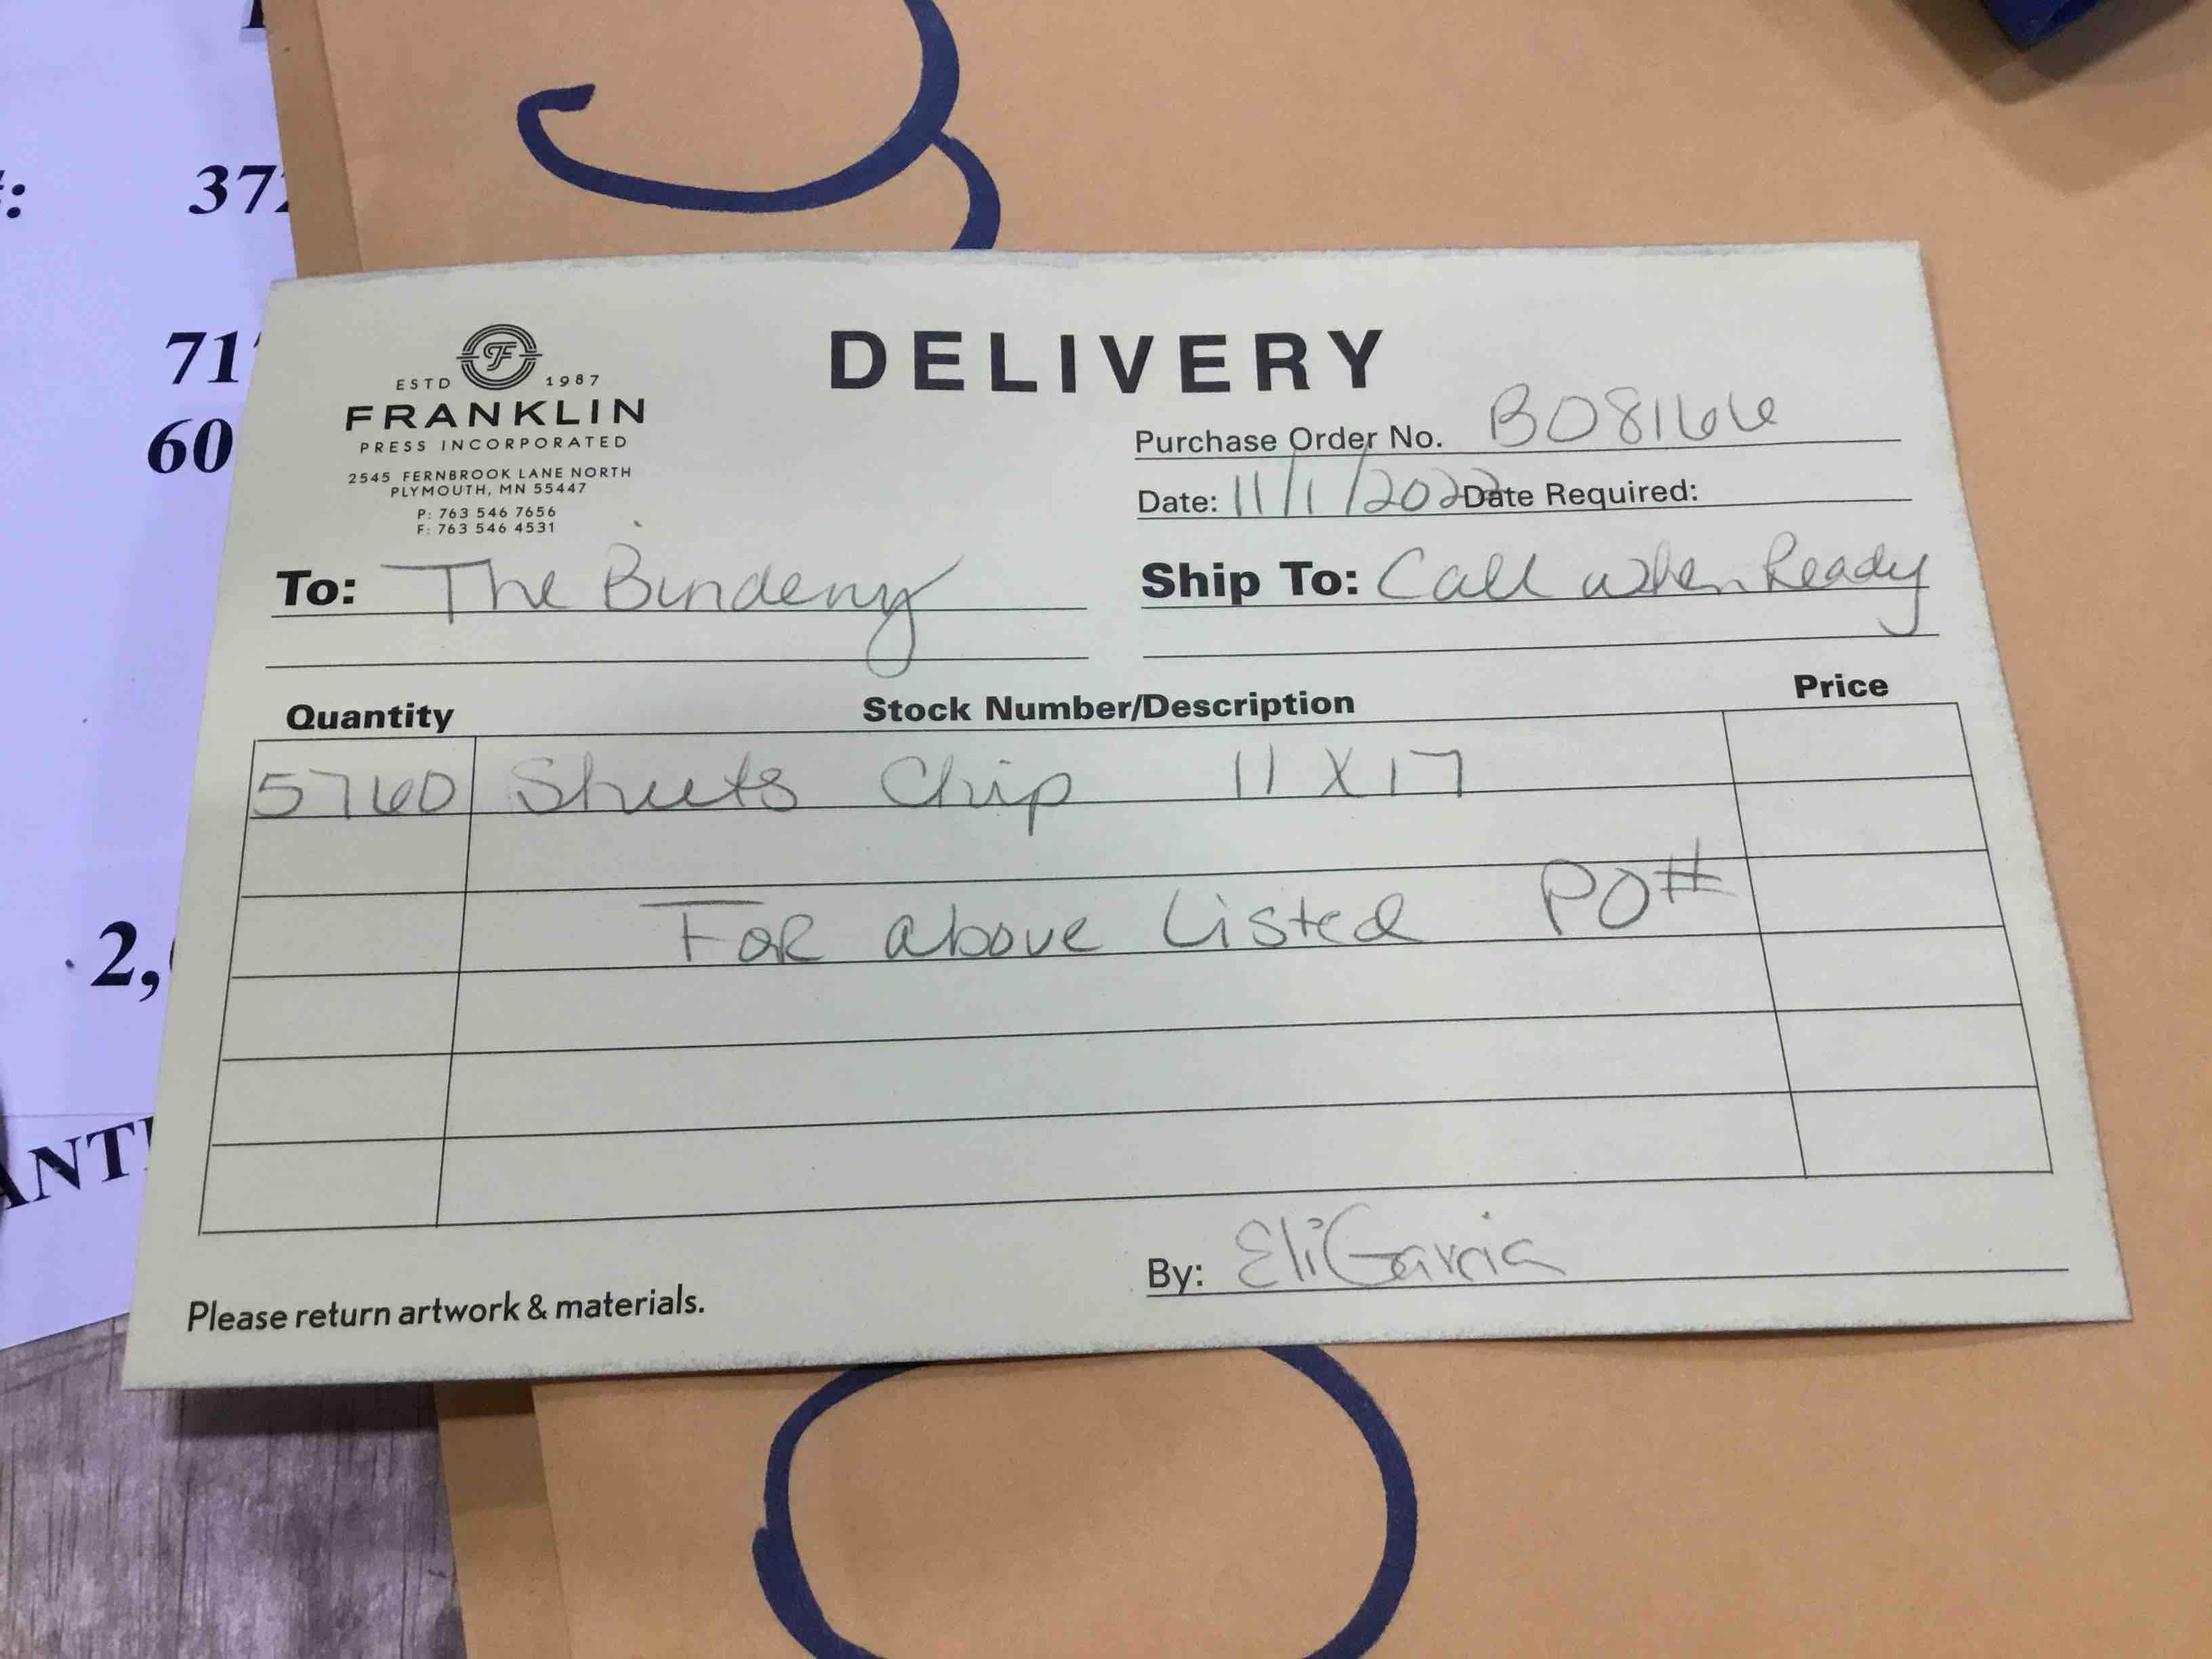 #:
37
71
60
2,
ANTI
ESTD 1987
FRANKLIN
PRESS INCORPORATED
2545 FERNBROOK LANE NORTH
PLYMOUTH, MN 55447
P: 763 546 7656
F: 763 546 4531
DELIVERY
Purchase Order No. B08166
Date: 11/1/2022 Date Required:
To: The Bindery
Ship To: Call when Ready
Quantity Stock Number/Description Price
5760 Sheets Chip 11 X 17
For above Listed PO#
By: Eli Garcia
Please return artwork & materials.